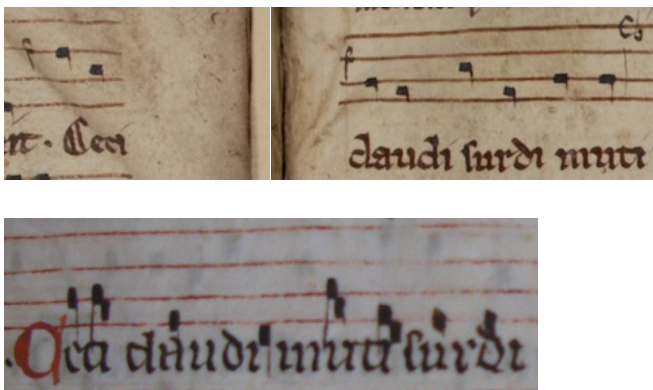 Ceci
claudi surdi muti
Ceci claudi muti surdi